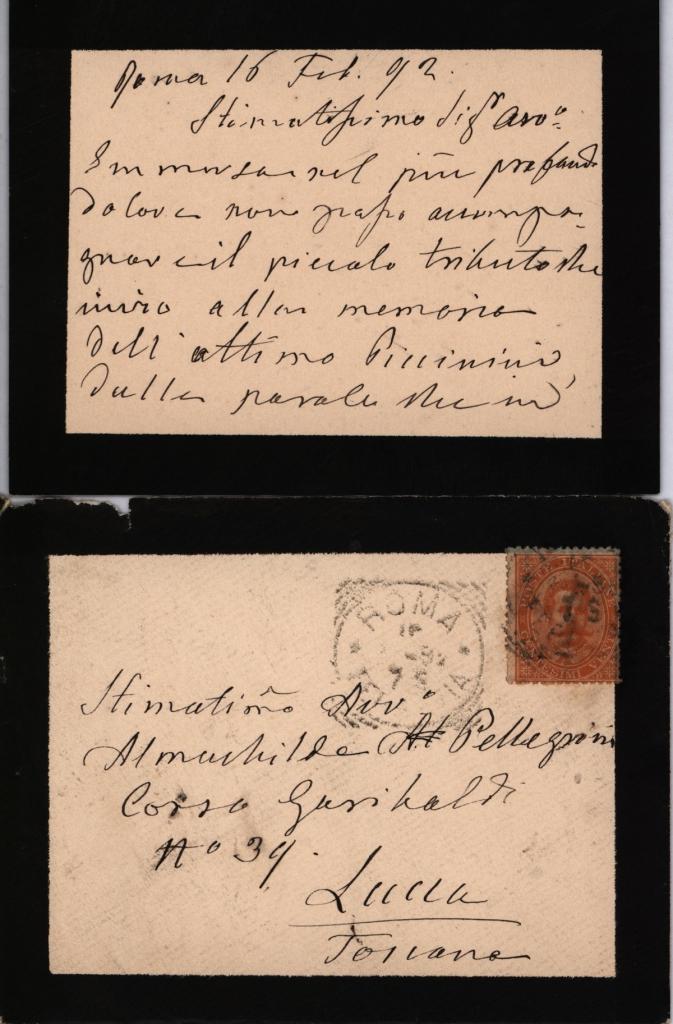 Roma 16 Feb. 92.
Stimatissimo Sigr Avvo
Immersa nel più profondo
dolore non posso accompa-
gnare il piccolo tributo che
invio alla memoria
dell' ottimo Piccinini,
dalle parole che in
ROMA
16
92
7 S
Stimatimo Avvo
Almachilde Pellegrini
Corso Garibaldi
No 39.
Lucca
Toscana